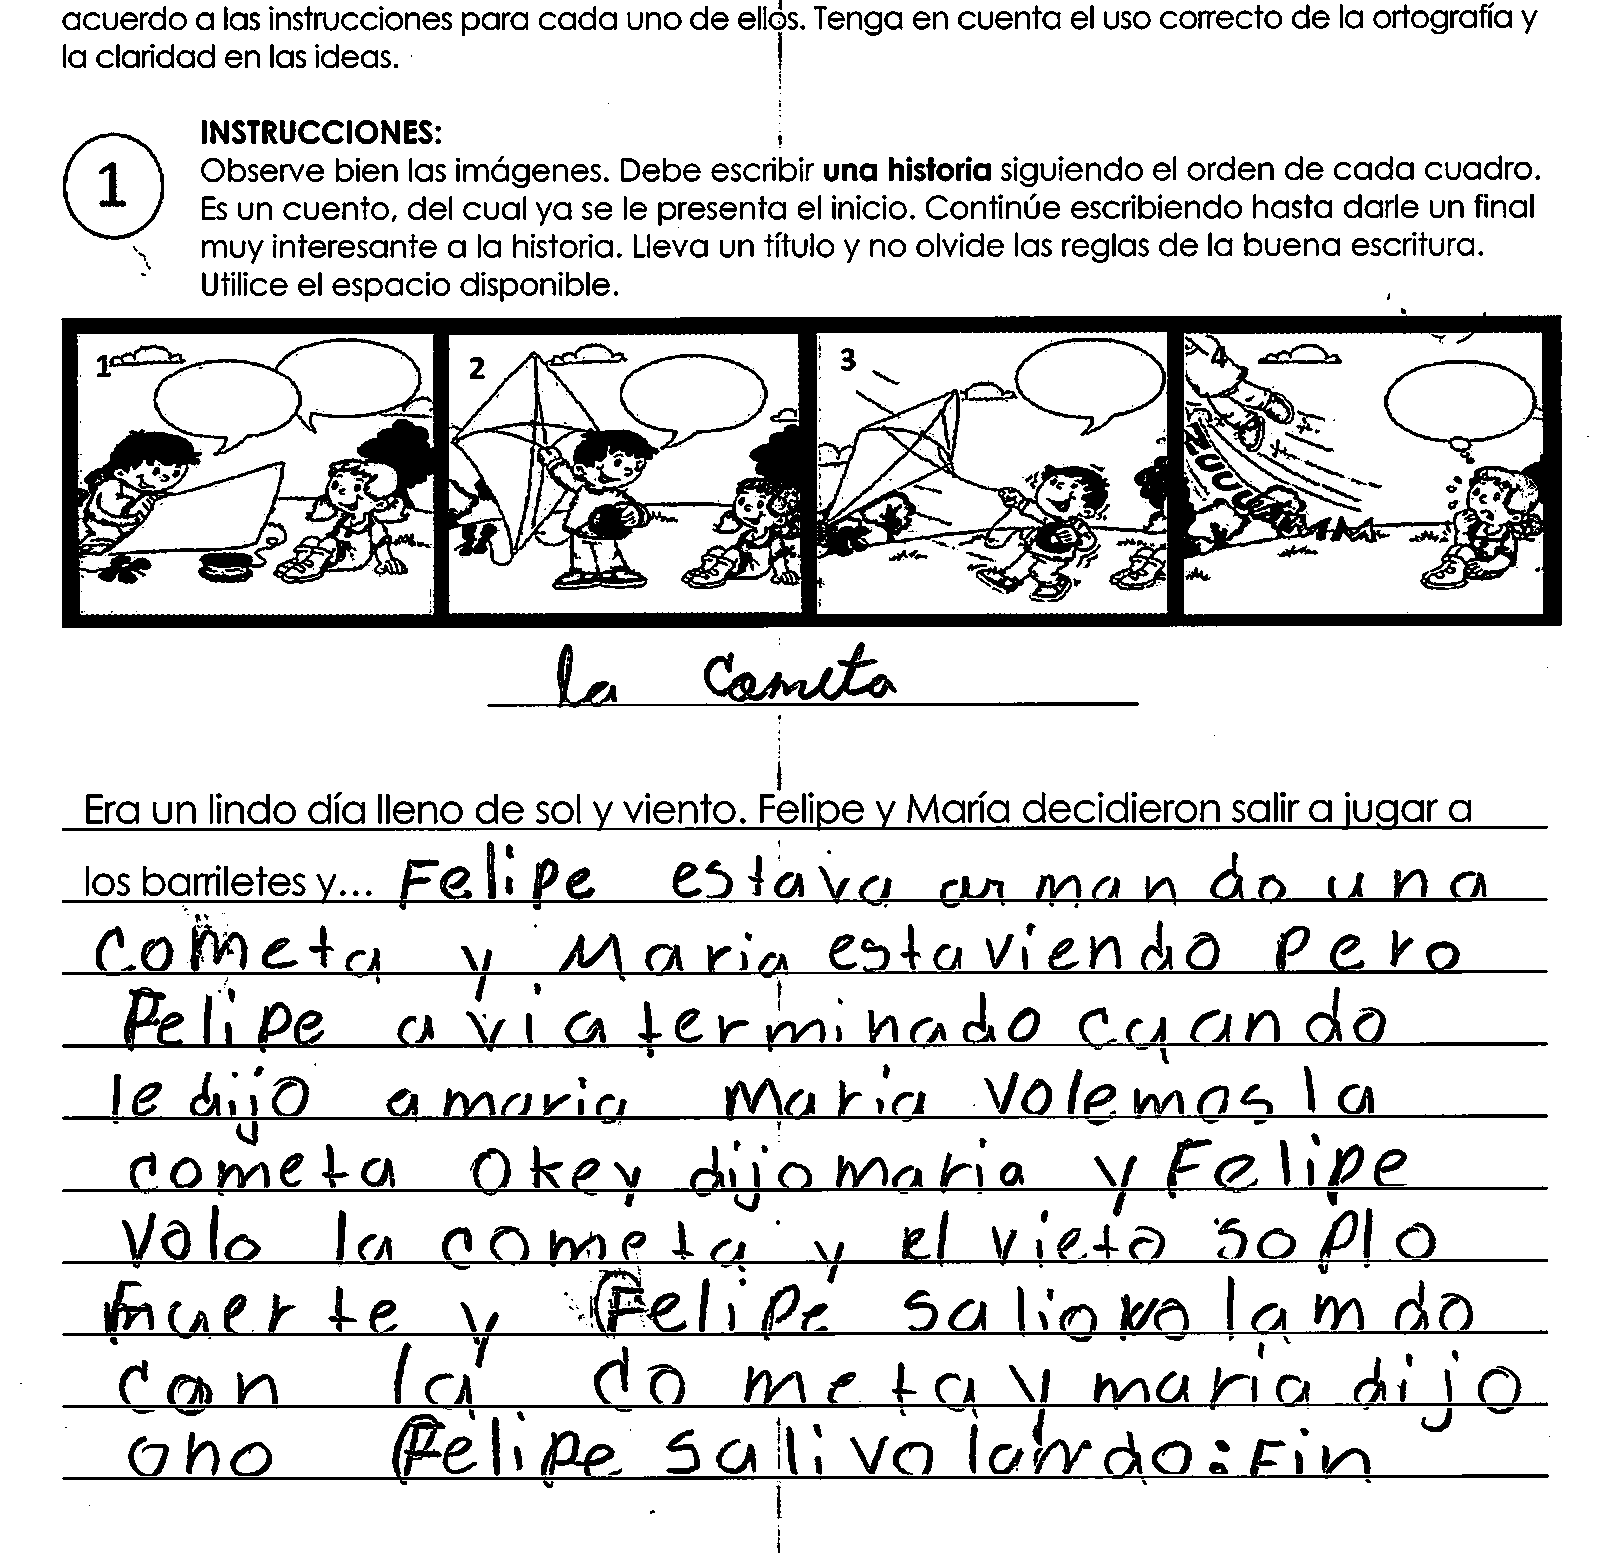 acuerdo a las instrucciones para cada uno de ellos. Tenga en cuenta el uso correcto de la ortografía y
la claridad en las ideas.
1
INSTRUCCIONES:
Observe bien las imágenes. Debe escribir una historia siguiendo el orden de cada cuadro.
Es un cuento, del cual ya se le presenta el inicio. Continúe escribiendo hasta darle un final
muy interesante a la historia. Lleva un título y no olvide las reglas de la buena escritura.
Utilice el espacio disponible.
1 2 3 4
ZUUUU
la Cometa
Era un lindo día lleno de sol y viento. Felipe y María decidieron salir a jugar a
los barriletes y... Felipe estava armando una
cometa y Maria estaviendo pero
Felipe avia terminado cuando
le dijo amaria Maria volemos la
cometa Okey dijo maria y Felipe
volo la cometa y el vieto soplo
fuerte y Felipe salio volamdo
con la cometa y maria dijo
ono Felipe sali volando: Fin